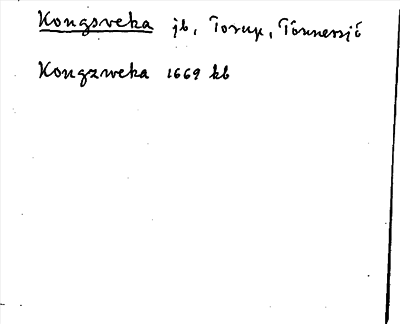 Kongsveka jb, Torup, Tönnersjö
Kongzweka 1669 kb